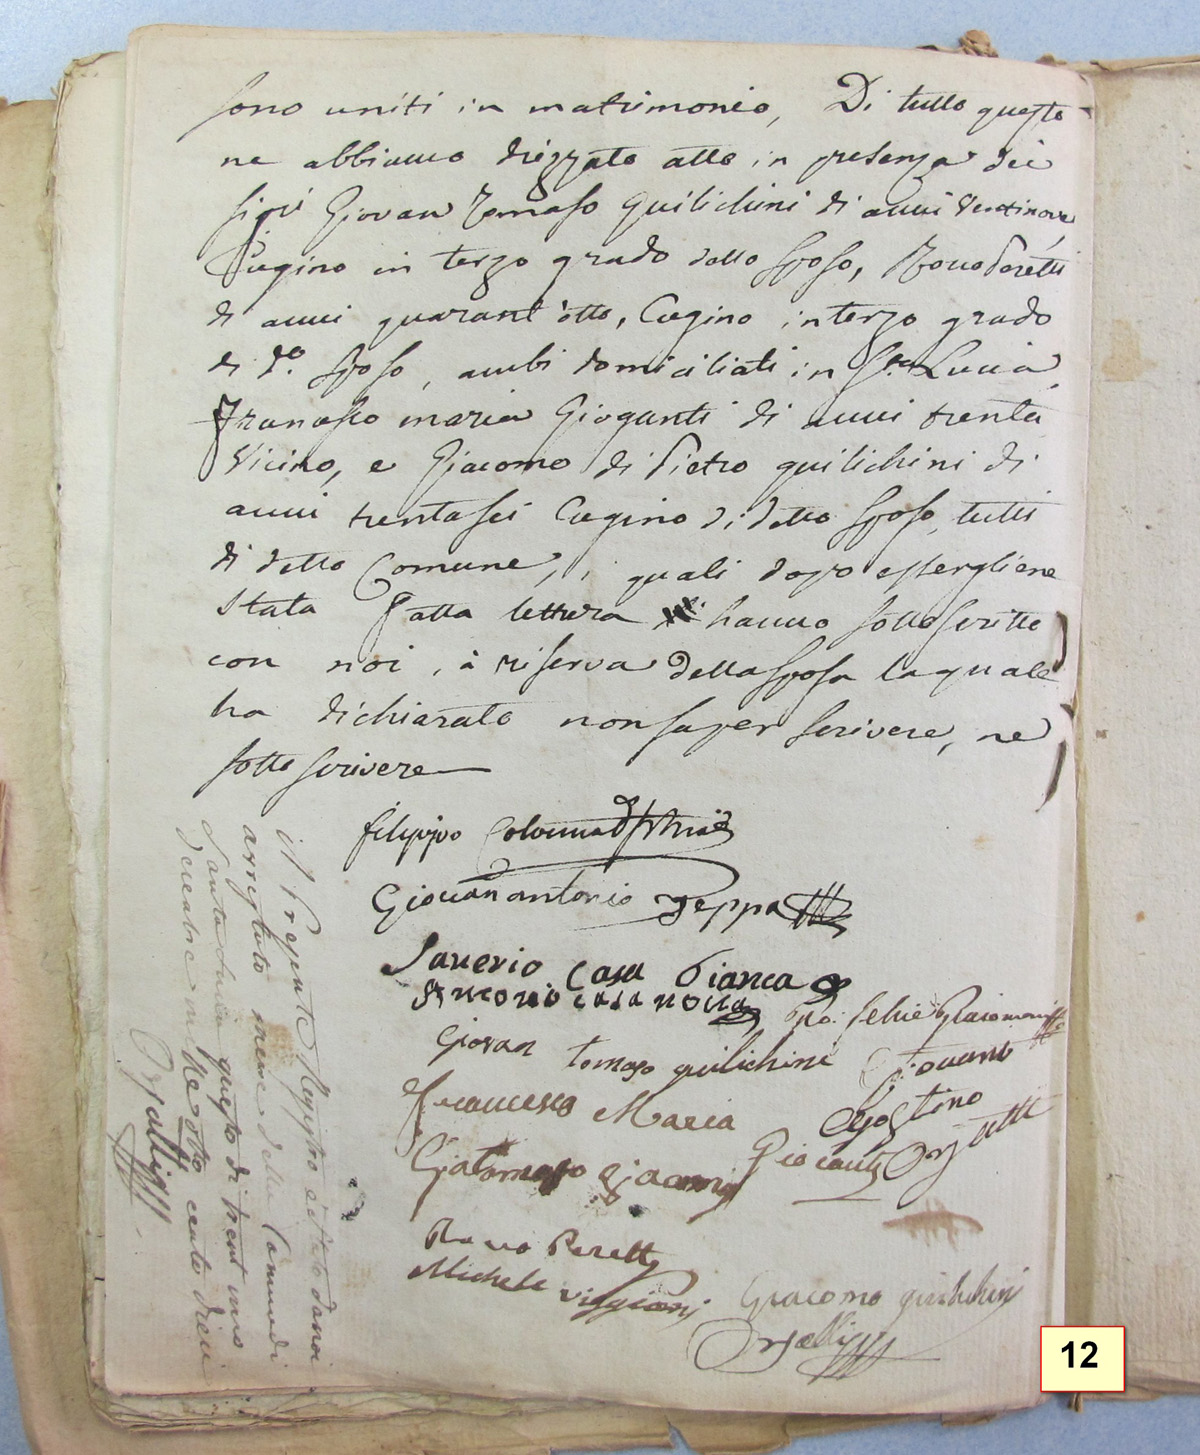 sono uniti in matrimonio, Di tutto questo
ne abbiamo drizzato atto in presenza dei
sigri Giovan Tomaso Quilichini di anni ventinove
Cugino in terzo grado dello sposo, Rocco Peretti
di anni quarant'otto, Cugino in terzo grado
di do. sposo, ambi domiciliati in Sta Lucia,
Francesco maria Gioganti di anni trenta
Vicino, e Giacomo di Pietro quilichini di
anni trentasei Cugino di detto sposo, tutti
di detto Comune, i quali dopo essergliene
stata fatta lettura hanno sottoscritto
con noi, à riserva della sposa la quale
ha dichiarato non saper scrivere, ne
sotto scrivere
filippo Colonna d'Istria
Giovan antonio Peppa
Saverio Casa Bianca
Antconio casa nova
Giacomoni
Giovan tomaso quilichini
Giovanni
Francesco Maria Giocanti
Agostino
Ortalli
Giatomaso Giacomoni
Rocco Peretti
Michele Viggiani
Giacomo quilichini
Ortalli
il presente Registro è stato da noi
arrestato mene della Comune di
Santa Lucia questo di trent'uno
Decembre mille otto cento dieci
Ortalli
12